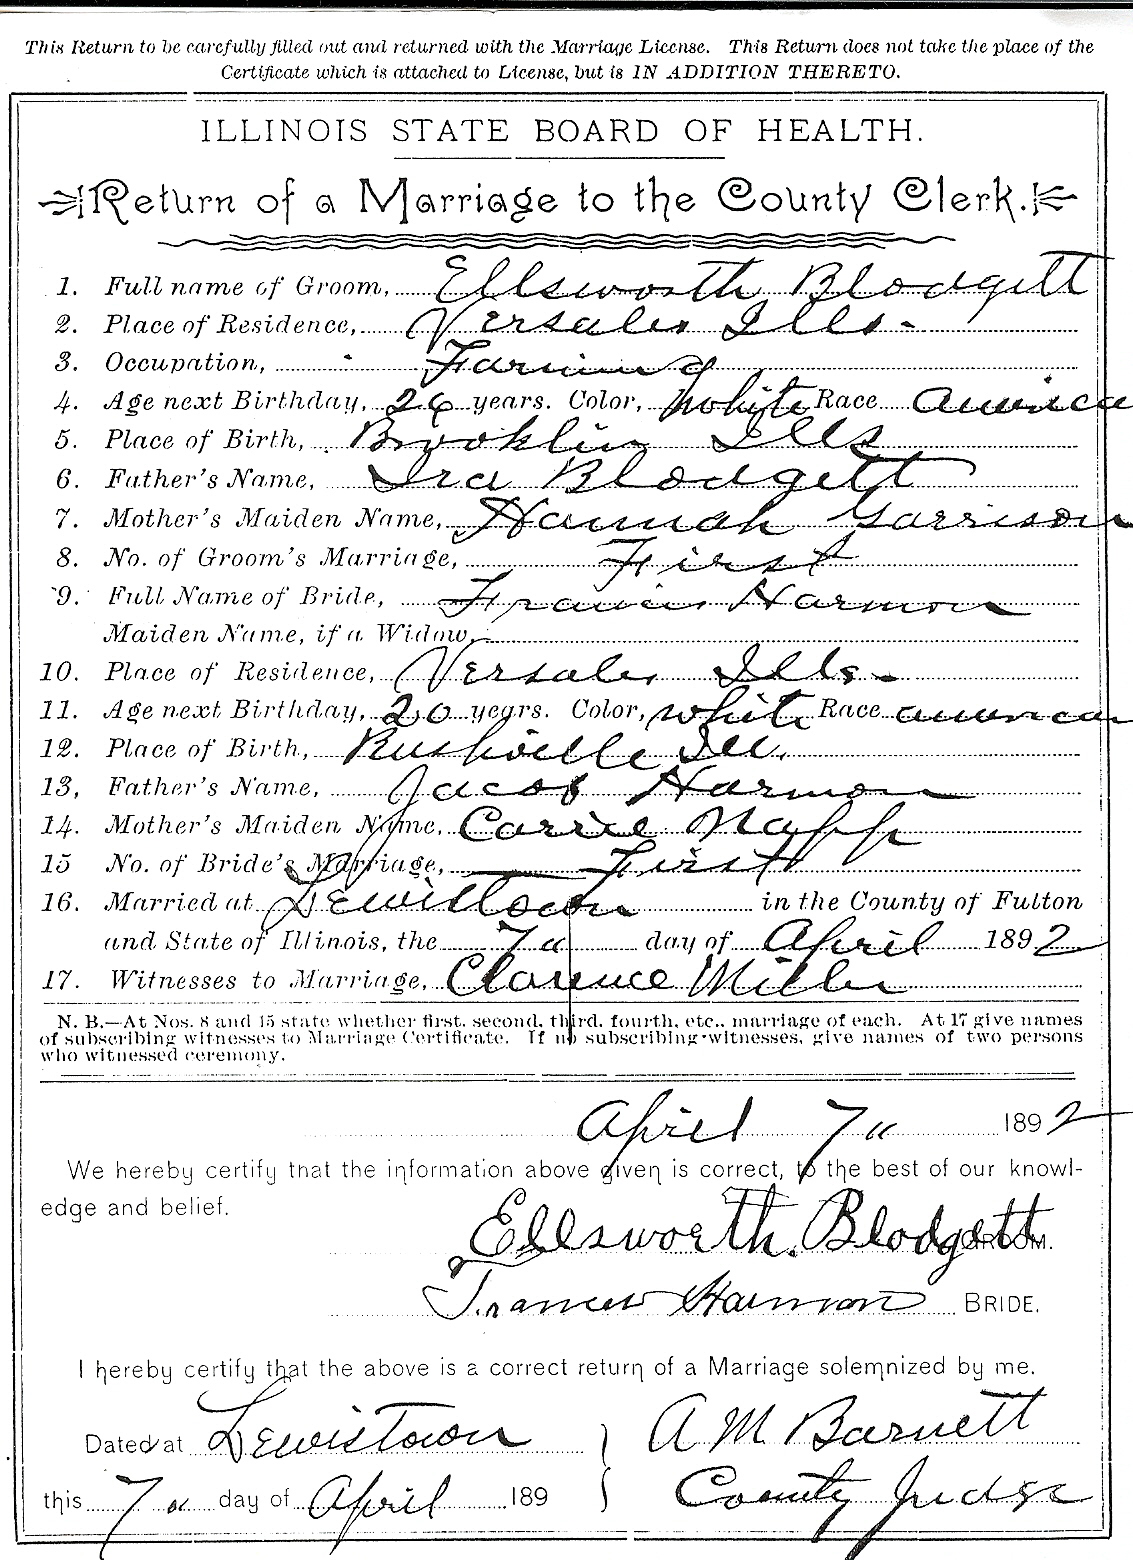 This Return to be carefully filled out and returned with the Marriage License. This Return does not take the place of the
Certificate which is attached to License, but is IN ADDITION THERETO.
ILLINOIS STATE BOARD OF HEALTH.
Return of a Marriage to the County Clerk.
1. Full name of Groom, Ellsworth Blodgett
2. Place of Residence, Versales Ills.
3. Occupation, Farming
4. Age next Birthday, 26 years. Color, White Race America
5. Place of Birth, Brooklin Ills
6. Father's Name, Ira Blodgett
7. Mother's Maiden Name, Hannah Garrison
8. No. of Groom's Marriage, First
9. Full Name of Bride, Francis Harmon
Maiden Name, if a Widow,
10. Place of Residence, Versales Ills.
11. Age next Birthday, 20 years. Color, white Race american
12. Place of Birth, Rushville Ill.
13, Father's Name, Jacob Harmon
14. Mother's Maiden Name, Carrie Napp
15 No. of Bride's Marriage, First
16. Married at Lewistown in the County of Fulton
and State of Illinois, the 7" day of April 1892
17. Witnesses to Marriage, Clarence Miller
N. B.—At Nos. 8 and 15 state whether first, second, third, fourth, etc., marriage of each. At 17 give names
of subscribing witnesses to Marriage Certificate. If no subscribing witnesses, give names of two persons
who witnessed ceremony.
April 7" 1892
We hereby certify that the information above given is correct, to the best of our knowl-
edge and belief.
Ellsworth. Blodgett GROOM.
Frances Harmon BRIDE.
I hereby certify that the above is a correct return of a Marriage solemnized by me.
Dated at Lewistown A M Barnett
this 7" day of April 189 County Judge